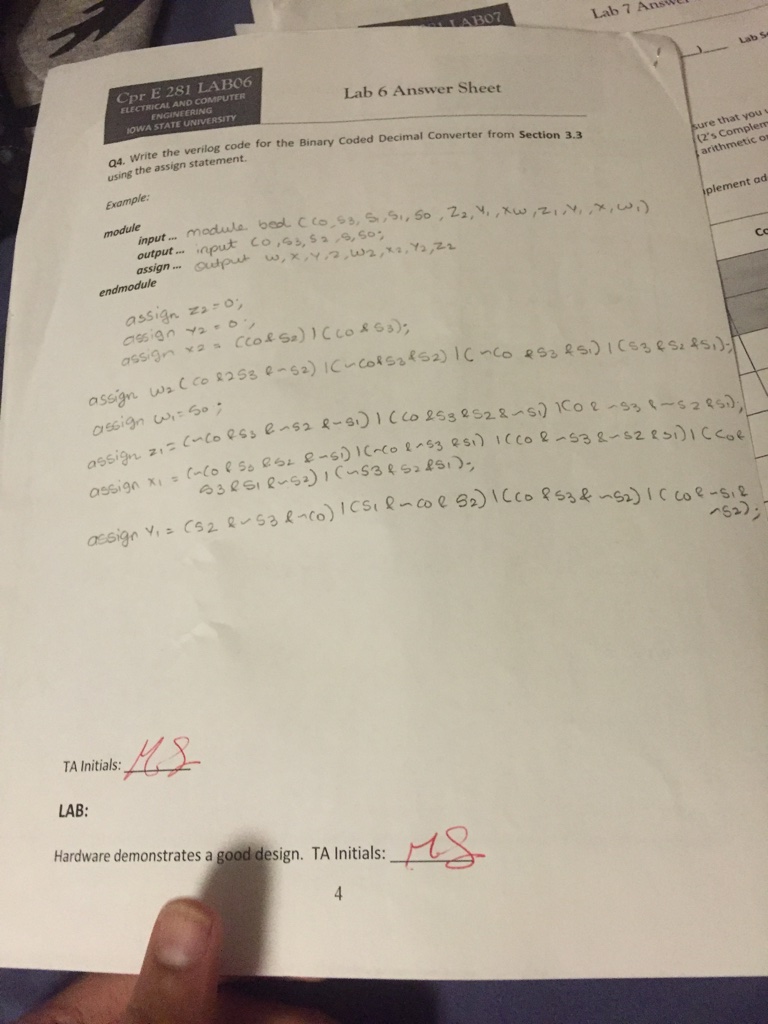 LAB07
Lab 7 Answer
Lab S
Cpr E 281 LAB06
ELECTRICAL AND COMPUTER
ENGINEERING
IOWA STATE UNIVERSITY
Lab 6 Answer Sheet
sure that you
(2's Complem
arithmetic o
plement ad
Co
Q4. Write the verilog code for the Binary Coded Decimal Converter from Section 3.3
using the assign statement.
Example:
module
input ... module bcd (Co, S3, S1, S1, S0, Z2, Y1, XW, Z1, Y1, X, W1)
output ... input Co, S3, S2, S, S0;
assign ... output W, X, Y, Z, W2, X2, Y2, Z2
endmodule
assign Z2 = 0;
assign Y2 = 0;
assign X2 = (Co & S2) | (Co & S3);
assign W2 (Co & 2S3 & ~S2) | (~Co & S3 & S2) | (~Co & S3 & S1) | (S3 & S2 & S1);
assign W1 = S0;
assign Z1 = (~Co & S3 & ~S2 & ~S1) | (Co & S3 & S2 & ~S1) | (Co & ~S3 & ~S2 & S1);
assign X1 = (~Co & S3 & S2 & ~S1) | (~Co & ~S3 & S1) | (Co & ~S3 & ~S2 & S1) | (Co &
S3 & S1 & ~S2) | (~S3 & S2 & S1);
assign Y1 = (S2 & ~S3 & ~Co) | (S1 & ~Co & S2) | (Co & S3 & ~S2) | (Co & ~S1 &
~S2);
TA Initials: MS
LAB:
Hardware demonstrates a good design. TA Initials: MS
4